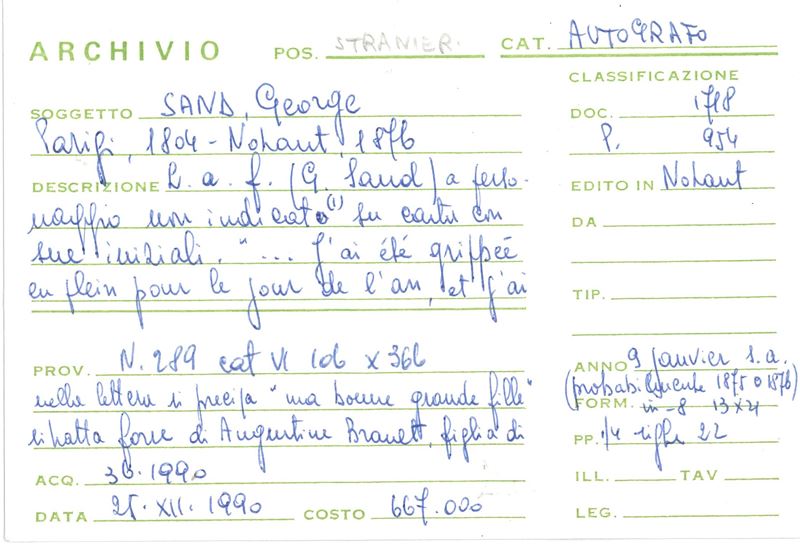 ARCHIVIO POS. STRANIER. CAT. AUTOGRAFO
CLASSIFICAZIONE
SOGGETTO SAND, George
DOC. 1718
Parigi, 1804 - Nohant, 1876
P. 954
DESCRIZIONE L. a. f. (G. Sand) a perso-
EDITO IN Nohant
naggio non indicato (1) su carta con
DA
sue iniziali. "... J'ai été grippée
en plein pour le jour de l'an, et j'ai
TIP.
PROV. N. 289 cat VI 106 x 366
ANNO 9 janvier s.a.
(probabilmente 1875 o 1876)
nella lettera si precisa "ma bonne grande fille"
FORM. in-8 13x21
si tratta forse di Augustine Brault, figlia di
PP. 1/4 righe 22
ACQ. 36.1990
ILL. TAV
DATA 21.XII.1990 COSTO 667.000
LEG.